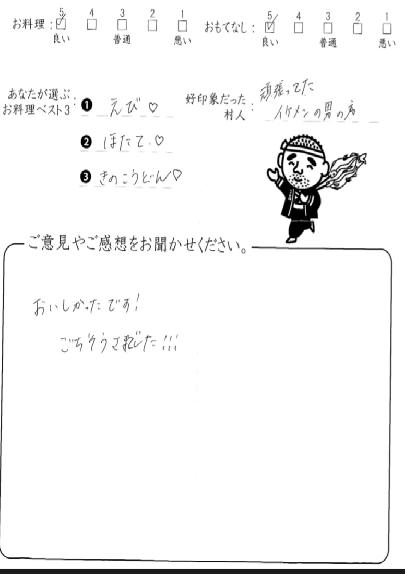 5 4 3 2 1
お料理:
良い 普通 悪い
5 4 3 2 1
おもてなし:
良い 普通 悪い
あなたが選ぶ
お料理ベスト3:
❶ えび♡
❷ ほたて♡
❸ きのこうどん♡
好印象だった
村人:
頑張ってた
イケメンの男の方
ご意見やご感想をお聞かせください。
おいしかったです!
ごちそうさまでした!!!